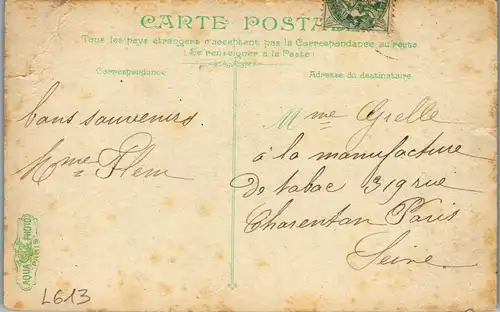 CARTE POSTALE
Tous les pays étrangers n'acceptent pas la Correspondance au recto
(Se renseigner à la Poste)
Correspondance
Adresse du destinataire
bons souvenirs.
Mme Flem
Mme Grelle
à la manufacture
de tabac 319 rue
Charenton Paris
Seine.
AQUA PHOTO
PARIS
L613